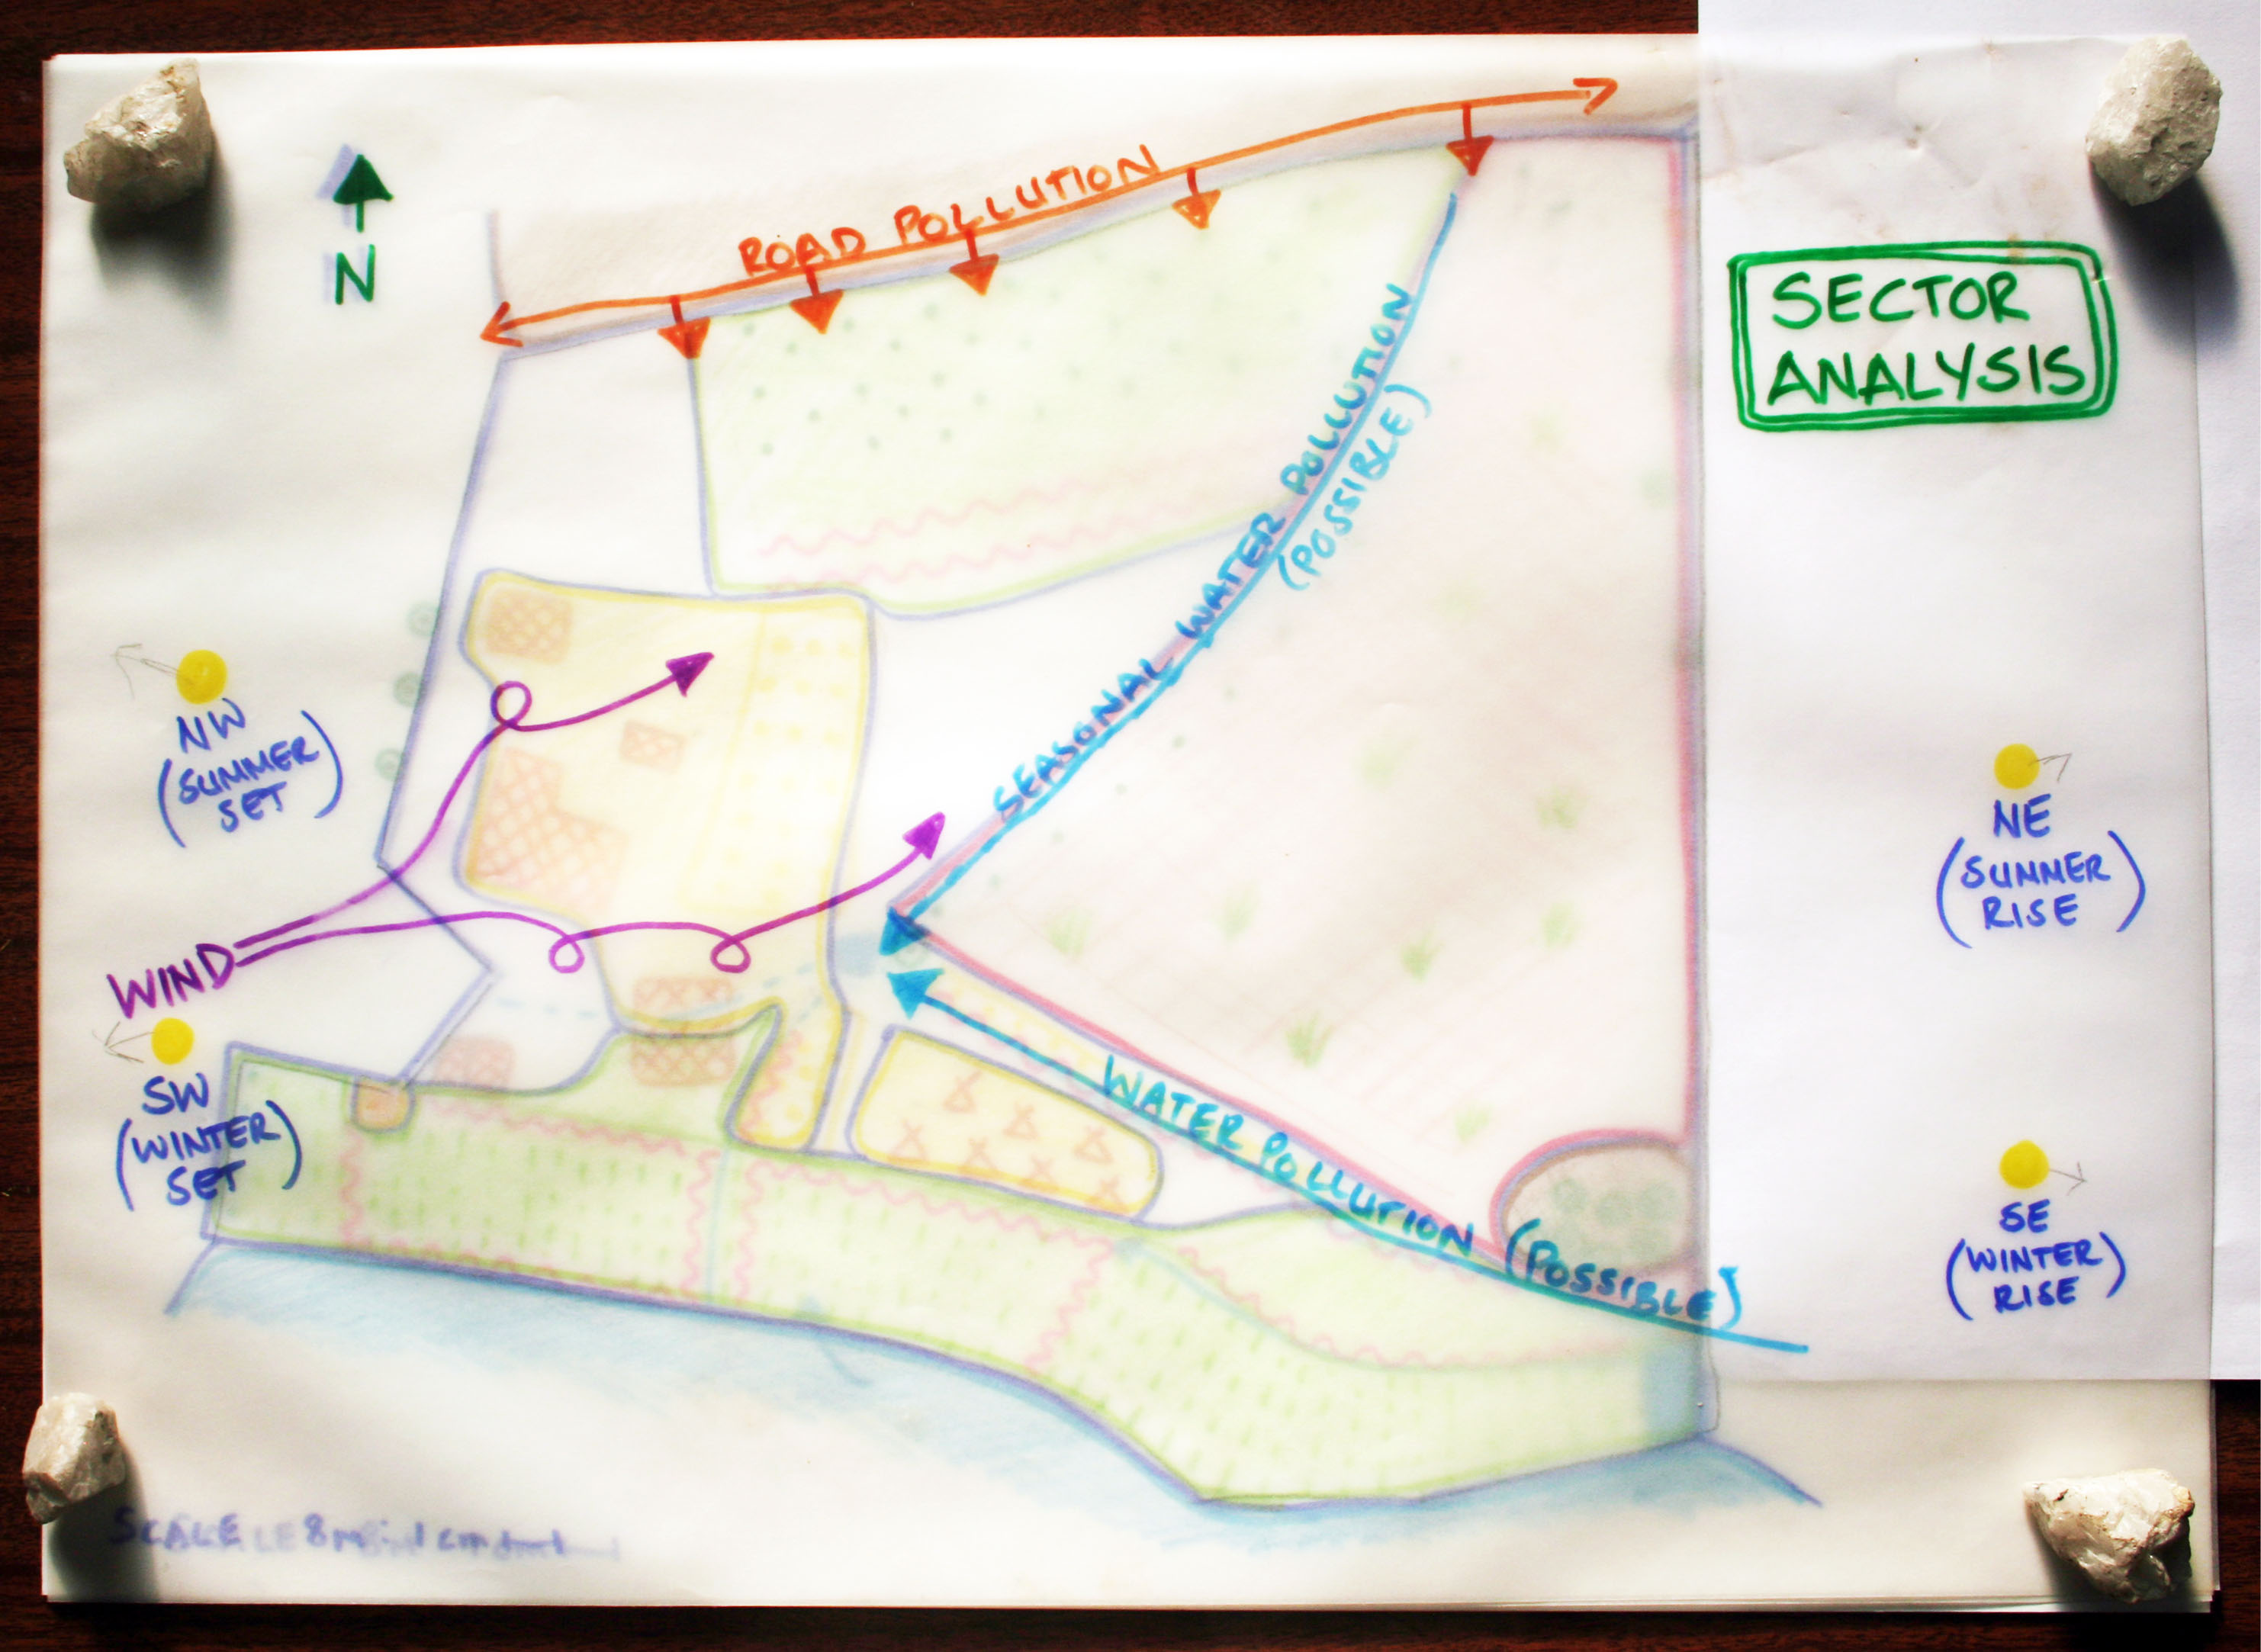 N
ROAD POLLUTION
SECTOR
ANALYSIS
SEASONAL WATER POLLUTION
(POSSIBLE)
NW
(SUMMER
SET)
NE
(SUMMER
RISE)
WIND
SW
(WINTER
SET)
WATER POLLUTION (POSSIBLE)
SE
(WINTER
RISE)
SCALE